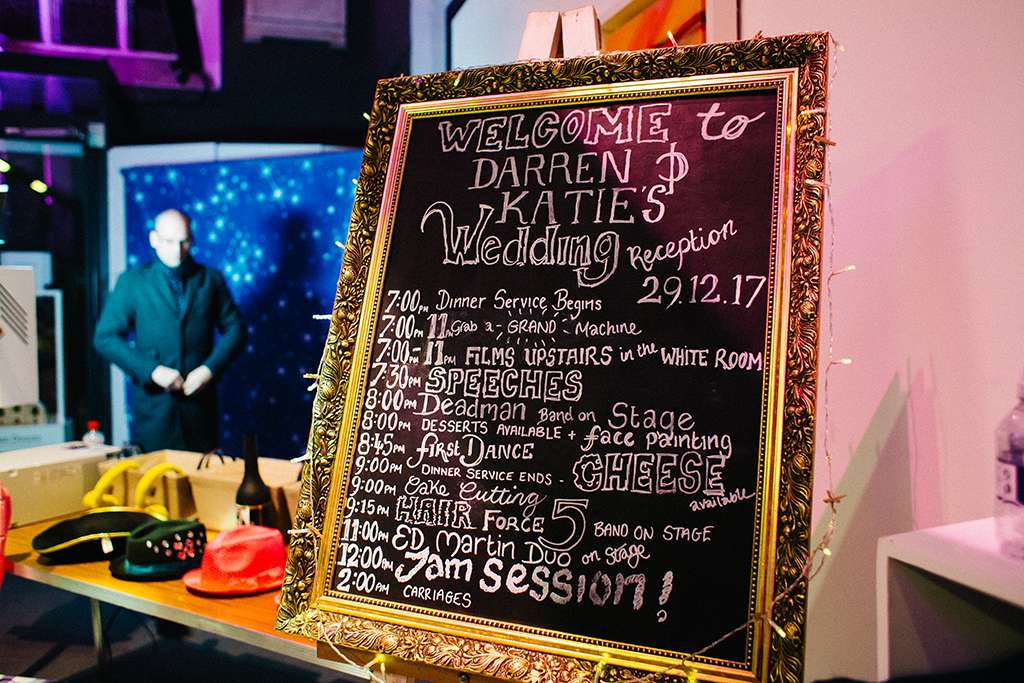 WELCOME to
DARREN &
KATIE'S
Wedding Reception
29.12.17
7:00PM Dinner Service Begins
7:00PM 11PM Grab a - GRAND - Machine
7:00PM - 11PM FILMS UPSTAIRS in the WHITE ROOM
7:30PM SPEECHES
8:00PM Deadman Band on Stage
8:00PM DESSERTS AVAILABLE + face painting
8:45PM first DANCE
9:00PM DINNER SERVICE ENDS - CHEESE available
9:00PM Cake Cutting
9:15PM HAIR FORCE 5 BAND ON STAGE
11:00PM ED Martin Duo on stage
12:00AM Jam SESSION!
2:00AM CARRIAGES